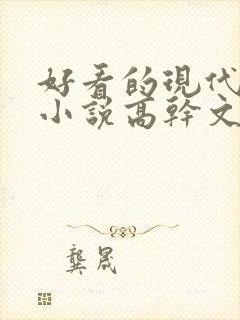 好看的现代
小說高幹文
龔晟